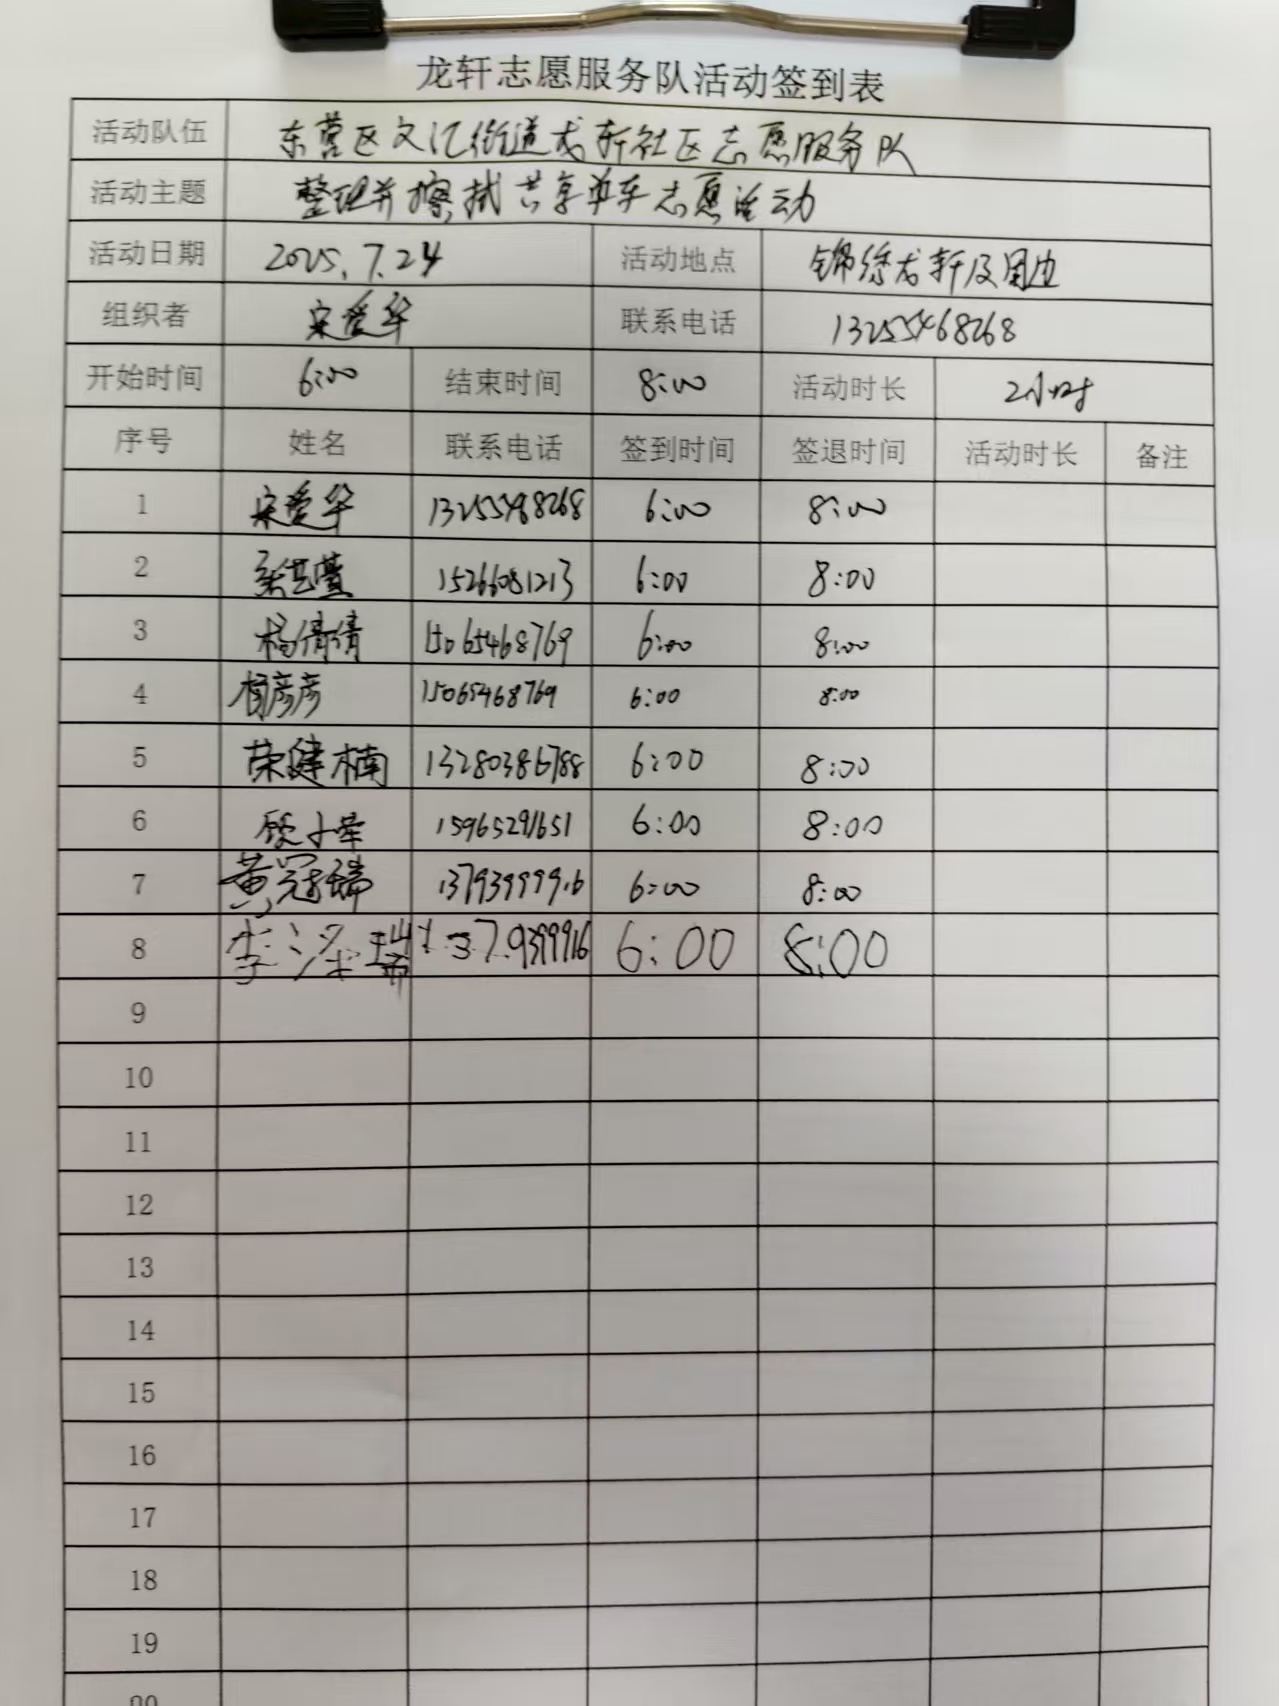 龙轩志愿服务队活动签到表
活动队伍 东营区文汇街道龙轩社区志愿服务队
活动主题 整理并擦拭共享单车志愿活动
活动日期 2025.7.24 活动地点 锦绣龙轩及周边
组织者 宋爱华 联系电话 13255468268
开始时间 6:00 结束时间 8:00 活动时长 2小时
序号 姓名 联系电话 签到时间 签退时间 活动时长 备注
1 宋爱华 13255468268 6:00 8:00
2 15266081213 6:00 8:00
3 杨倩倩 15065468769 6:00 8:00
4 杨彦彦 15065468769 6:00 8:00
5 荣健楠 13280386788 6:00 8:00
6 15965291651 6:00 8:00
7 黄冠瑞 13793999916 6:00 8:00
8 6:00 8:00
9
10
11
12
13
14
15
16
17
18
19
20